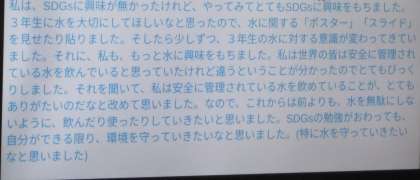 私は、SDGsに興味が無かったけれど、やってみてとてもSDGsに興味をもちました。
3年生に水を大切にしてほしいなと思ったので、水に関する「ポスター」「スライド」
を見せたり貼りました。そしたら少しずつ、3年生の水に対する意識が変わってきてい
ました。それに、私も、もっと水に興味をもちました。私は世界の皆は安全に管理され
ている水を飲んでいると思っていたけれど違うということが分かったのでとてもびっく
りしました。それを聞いて、私は安全に管理されている水を飲めていることが、とても
ありがたいのだなと改めて思いました。なので、これからは前よりも、水を無駄にしな
いように、飲んだり使ったりしていきたいと思いました。SDGsの勉強がおわっても、
自分ができる限り、環境を守っていきたいなと思いました。(特に水を守っていきたい
なと思いました)